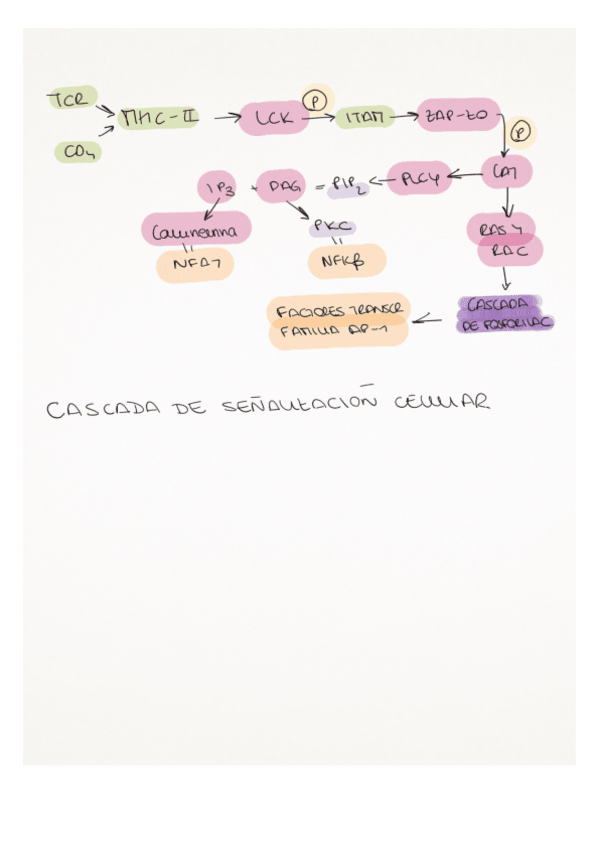 TCR
MHC-II
CD4
LCK
P
ITAM
ZAP-70
P
LAT
PLCγ
PIP2
=
DAG
+
IP3
Calcineurina
=
NFAT
PKC
=
NFKβ
RAS Y
RAC
CASCADA
DE FOSFORILAC
FACTORES TRANSCR
FAMILIA AP-1
CASCADA DE SEÑALIZACIÓN CELULAR